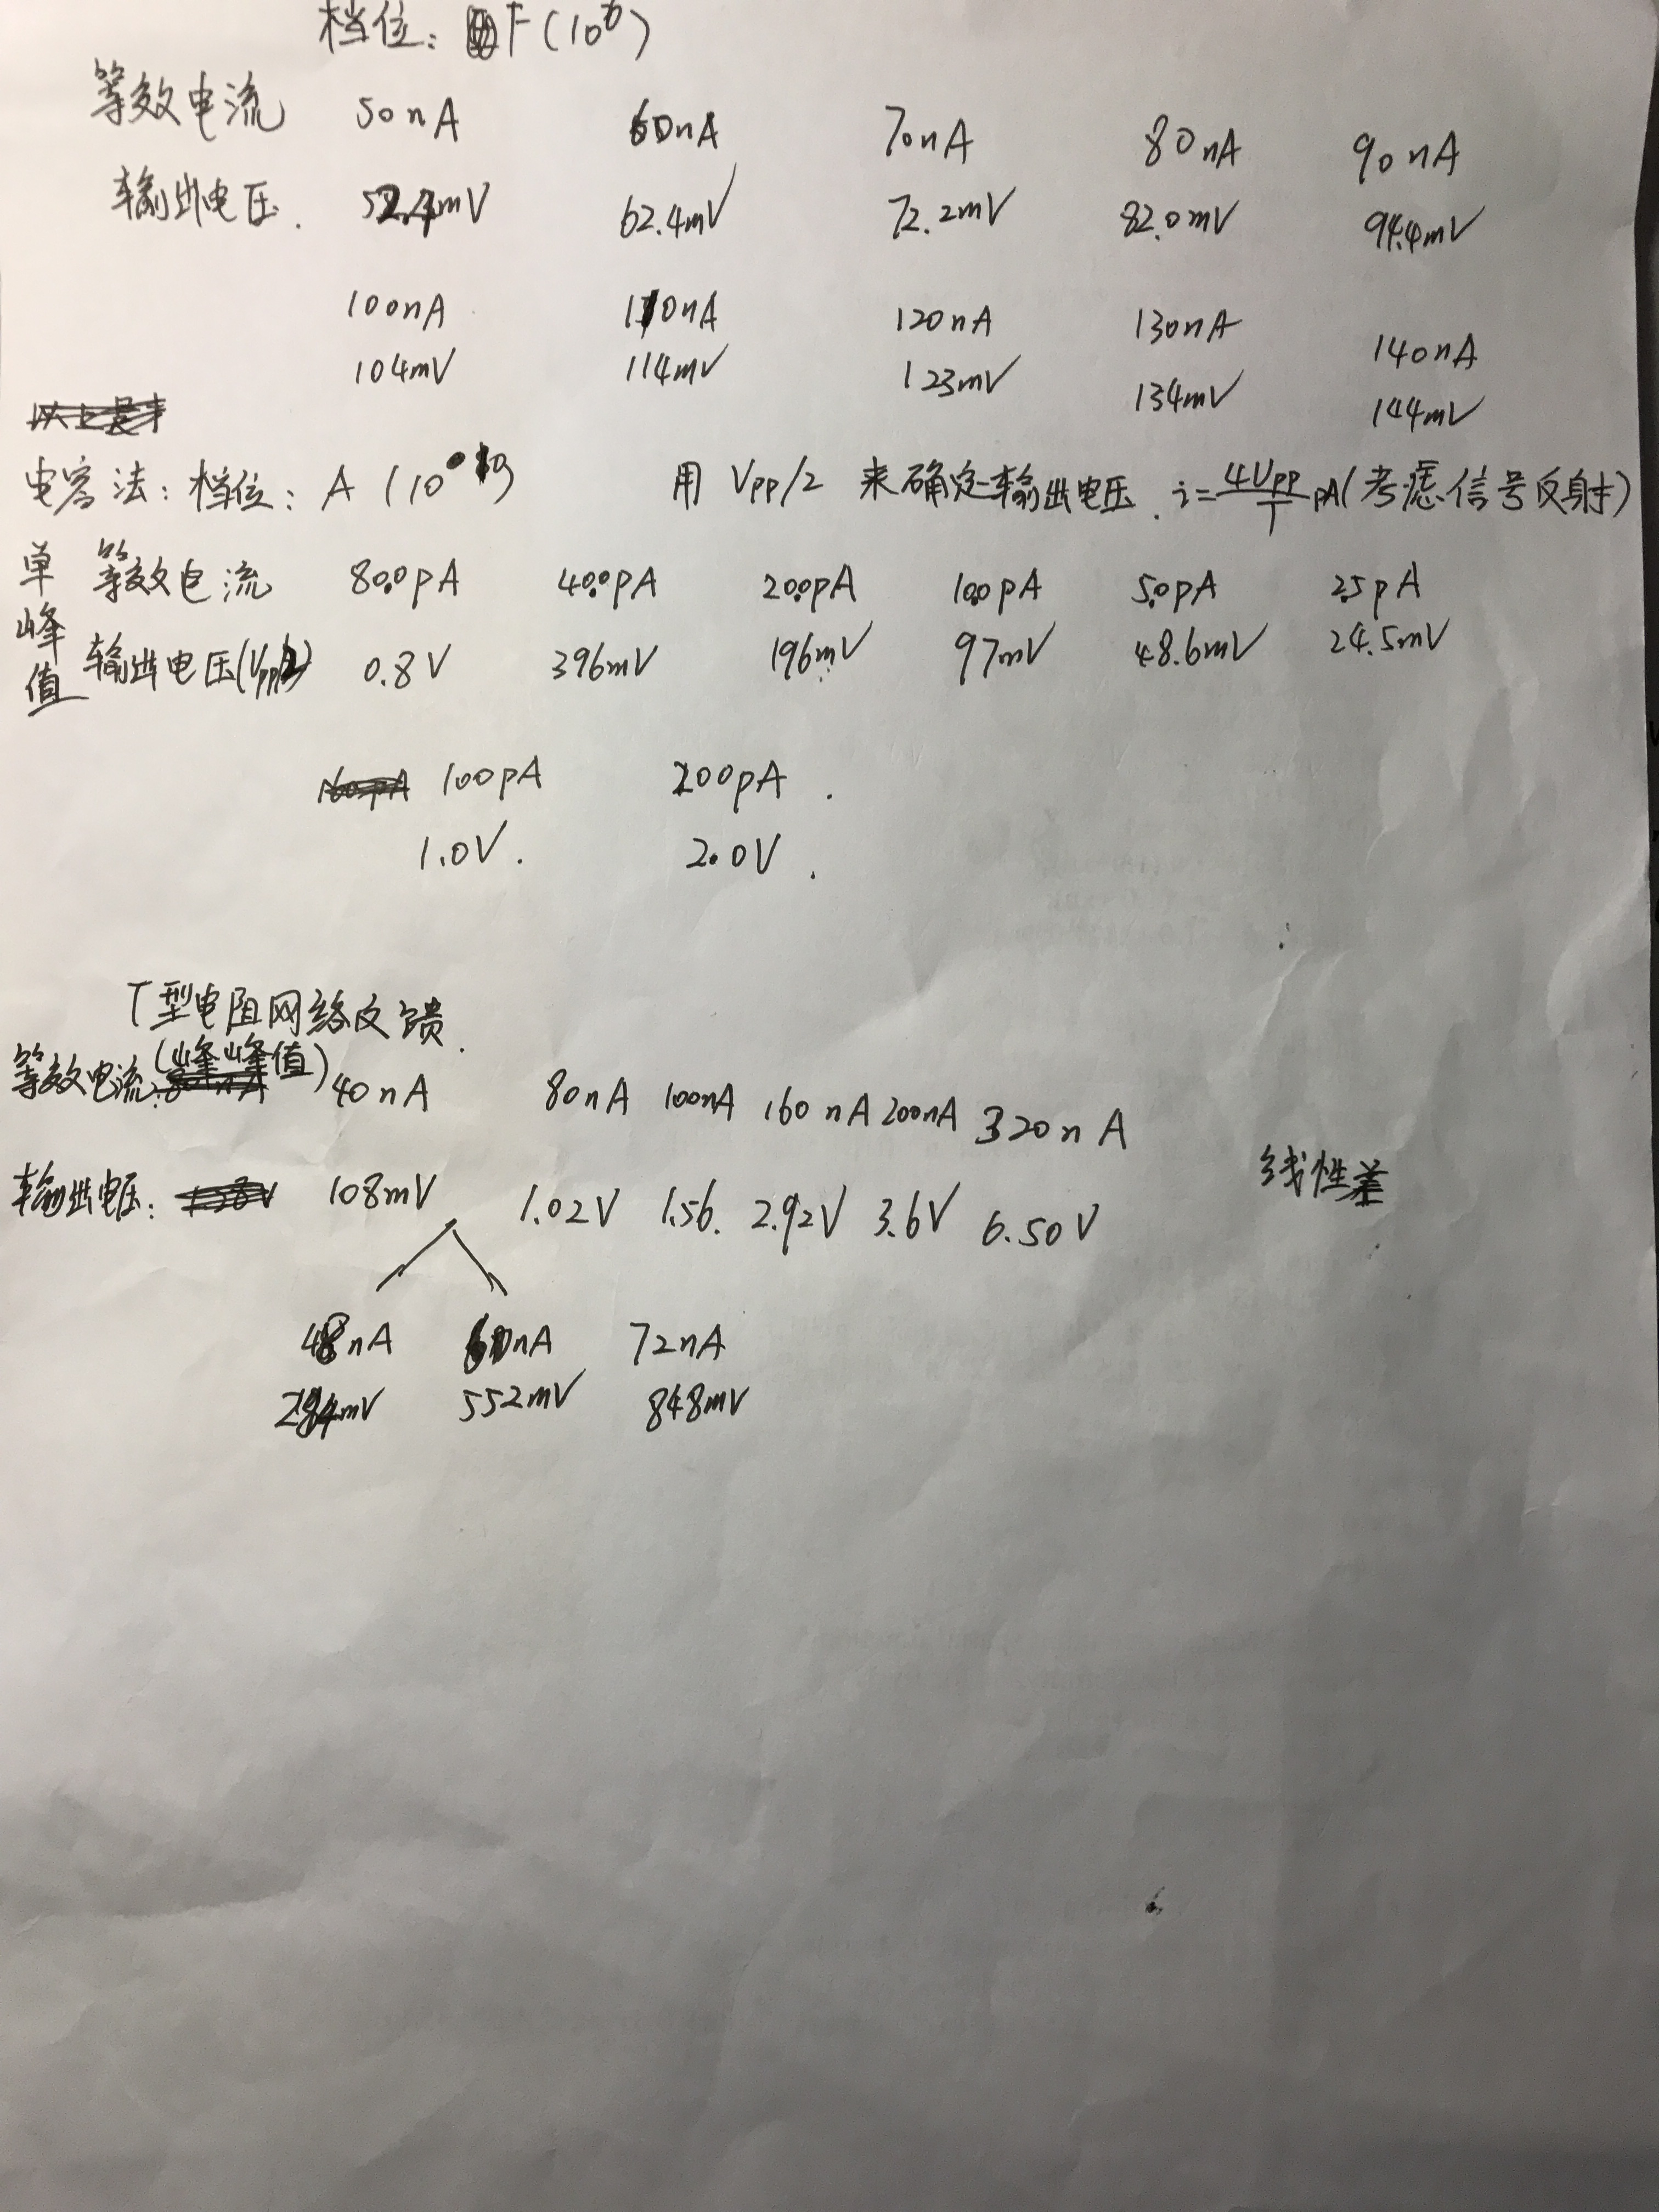 档位: F(10⁶)
等效电流 50nA 60nA 70nA 80nA 90nA
输出电压. 52.4mV 62.4mV 72.2mV 82.0mV 94.4mV
100nA 110nA 120nA 130nA 140nA
104mV 114mV 123mV 134mV 144mV
电容法: 档位: A 用 Vpp/2 来确定输出电压. i=4Vpp/T pA(考虑信号反射)
单峰值
等效电流 80.0pA 40.0pA 20.0pA 10.0pA 5.0pA 2.5pA
输出电压(Vpp/2) 0.8V 396mV 196mV 97mV 48.6mV 24.5mV
100pA 200pA.
1.0V. 2.0V.
T型电阻网络反馈.
等效电流:(峰峰值) 40nA 80nA 100nA 160nA 200nA 320nA
线性差
输出电压: 108mV 1.02V 1.56. 2.92V 3.6V 6.50V
48nA 60nA 72nA
284mV 552mV 848mV